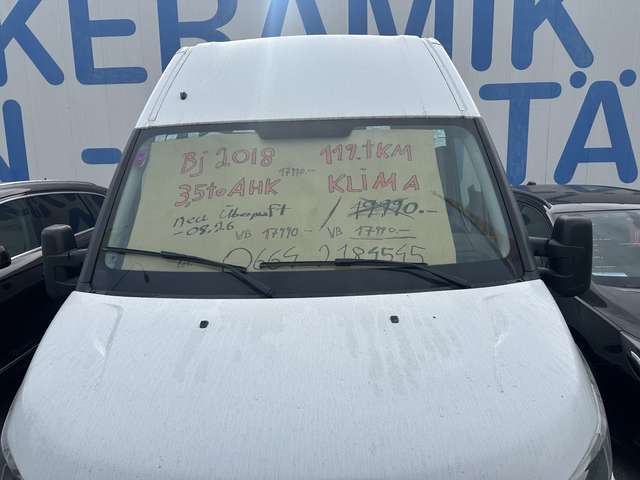 KERAMIK
N - TÄ
Bj 2018 17990.- 119.TKM
3,5to AHK KLIMA
neu Überprüft / 19990.-
-08.26 VB 17990.- VB 17990.-
0664 2184545